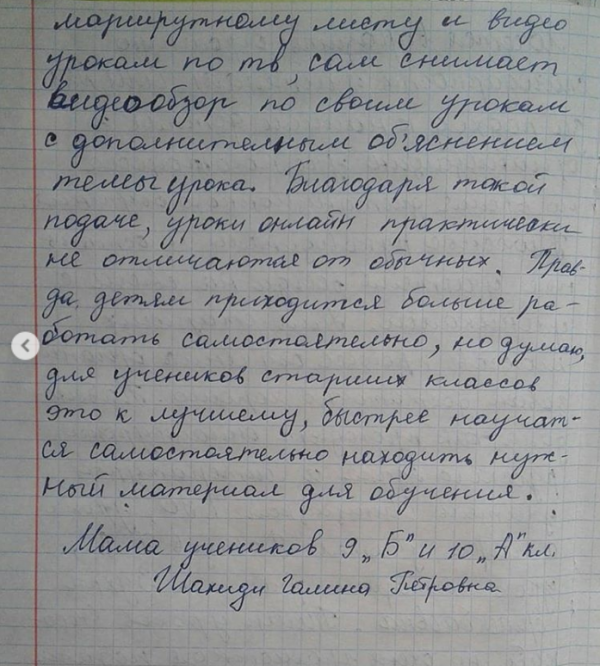 маршрутному листу и видео
урокам по тв, сам снимает
видеообзор по своим урокам
с дополнительным об'яснением
темы урока. Благодаря такой
подаче, уроки онлайн практически
не отличаются от обычных. Прав-
да, детям приходится больше ра-
ботать самостоятельно, но думаю,
для учеников старших классов
это к лучшему, быстрее научат-
ся самостоятельно находить нуж-
ный материал для обучения.
Мама учеников 9 „Б" и 10 „А" кл.
Шахиди Галина Петровна